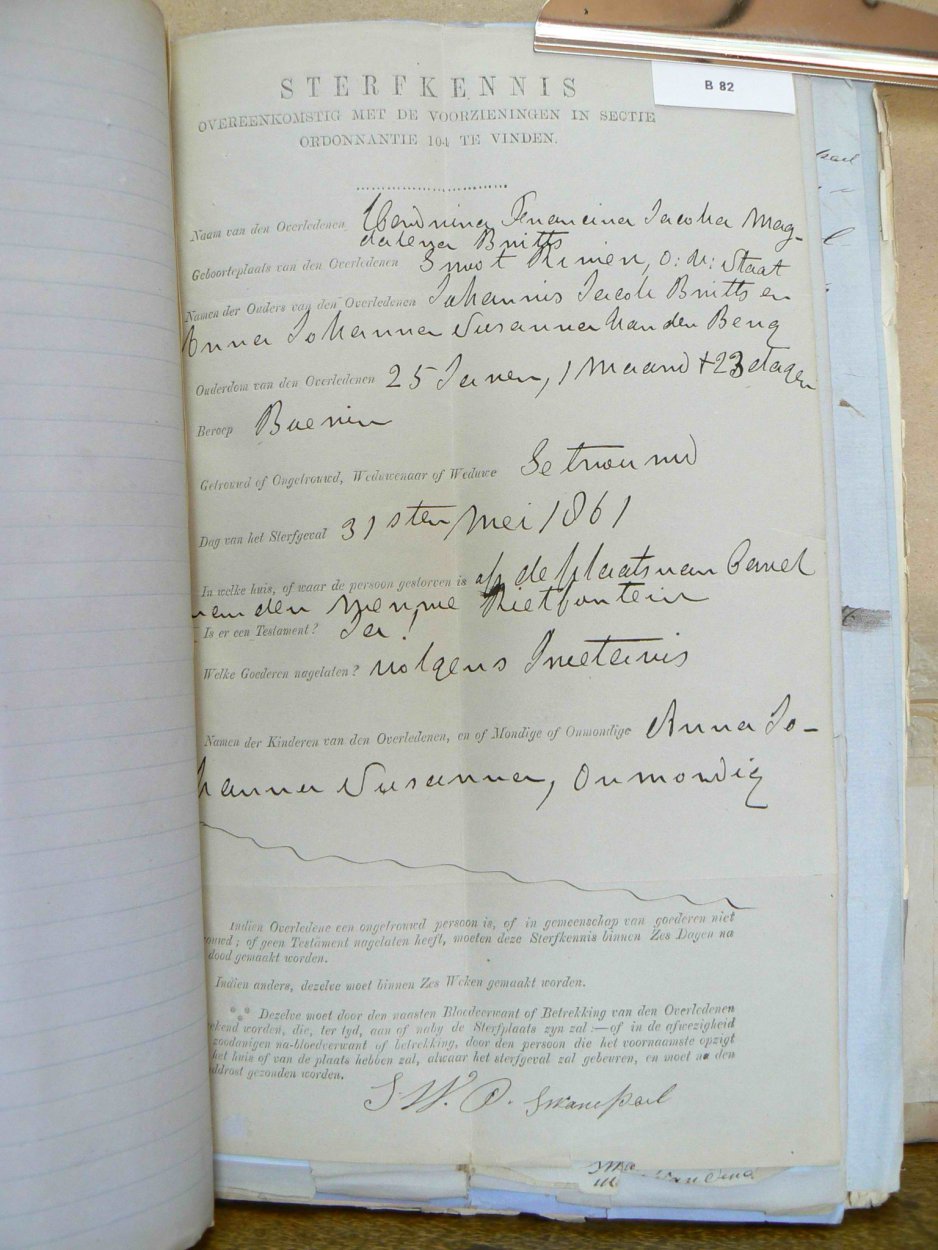 B 82
STERFKENNIS
OVEREENKOMSTIG MET DE VOORZIENINGEN IN SECTIE
ORDONNANTIE 104 TE VINDEN.
Naam van den Overledenen Francina Jacoba Mag-
dalena Britts
Geboorteplaats van den Overledenen Groot Rivier, O: V: Staat
Namen der Ouders van den Overledenen Johannis Jacob Britts en
Anna Johanna Susanna van den Berg
Ouderdom van den Overledenen 25 Jaren, 1 Maand + 23 dagen
Beroep Boerin
Getrouwd of Ongetrouwd, Weduwenaar of Weduwe Getrouwd
Dag van het Sterfgeval 31sten Mei 1861
In welke huis, of waar de persoon gestorven is op de plaats van Carel
van den Rietfontein
Is er een Testament? Ja!
Welke Goederen nagelaten? volgens Invetaris
Namen der Kinderen van den Overledenen, en of Mondige of Onmondige Anna Jo-
hanna Susanna, Onmondig
Indien Overledene een ongetrouwd persoon is, of in gemeenschap van goederen niet
ouwd; of geen Testament nagelaten heeft, moeten deze Sterfkennis binnen Zes Dagen na
dood gemaakt worden.
Indien anders, dezelve moet binnen Zes Weken gemaakt worden.
Dezelve moet door den naasten Bloedverwant of Betrekking van den Overledenen
ekend worden, die, ter tyd, aan of naby de Sterfplaats zyn zal :—of in de afwezigheid
zoodanigen na-bloedverwant of betrekking, door den persoon die het voornaamste opzigt
het huis of van de plaats hebben zal, alwaar het sterfgeval zal gebeuren, en moet na den
ddrost gezonden worden.
S. W. P. Swanepoel